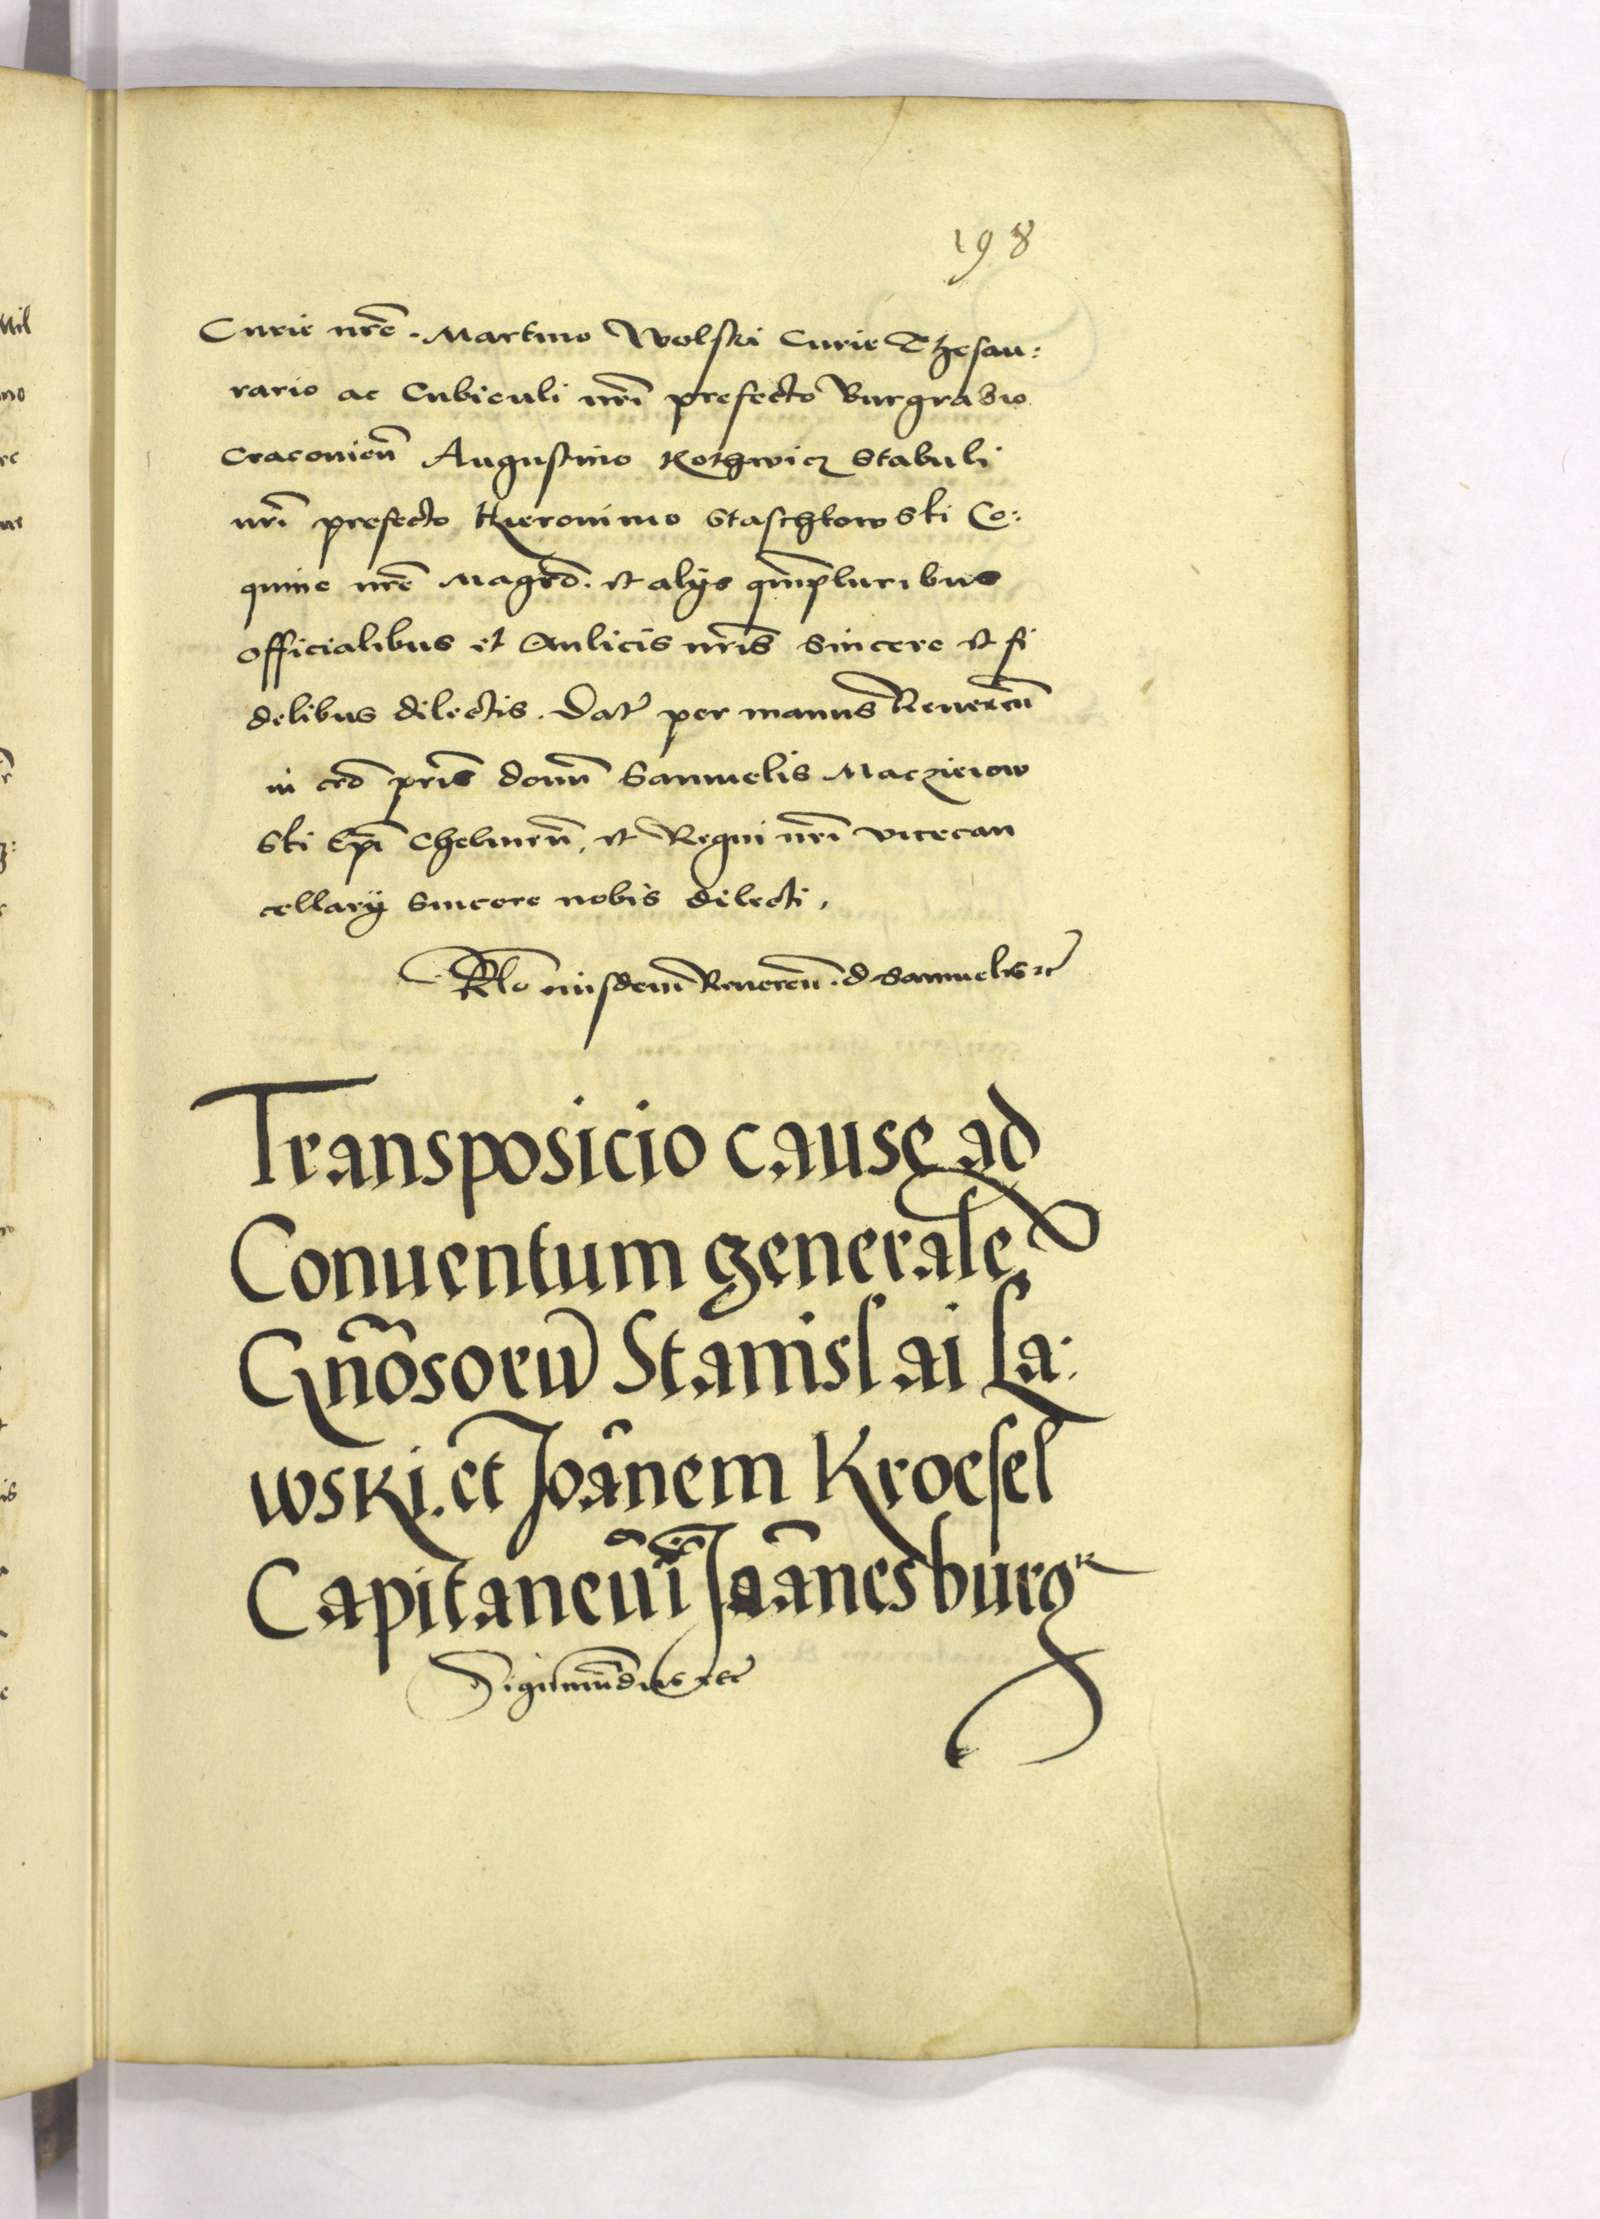 198
Curie nrē. Martino Wolski Curie Thesau:
rario ac Cubiculi nrī prefecto Burgrabio
Cracovien̄ Augustino Kothwicz Stabuli
nrī prefecto Hieronimo Staschkowski Co:
quine nrē Magrō. et alÿs qmpluribus
officialibus et Aulicis nrīs sincere et fi
delibus dilectis. Dat per manus Reveren̄
in crō prīs domī Samuelis Maczieiow
ski Epī Chelmen̄, et Regni nrī vicecan
cellarÿ sincere nobis dilecti,
Rlo eiusdem Reveren̄. d Samuelis etc
Transposicio cause ad
Conuentum generale
Gn̄osoru Stanislai La:
wski. et Joānem Kroesel
Capitaneūī Joānesburgn
Sigismūdus etc